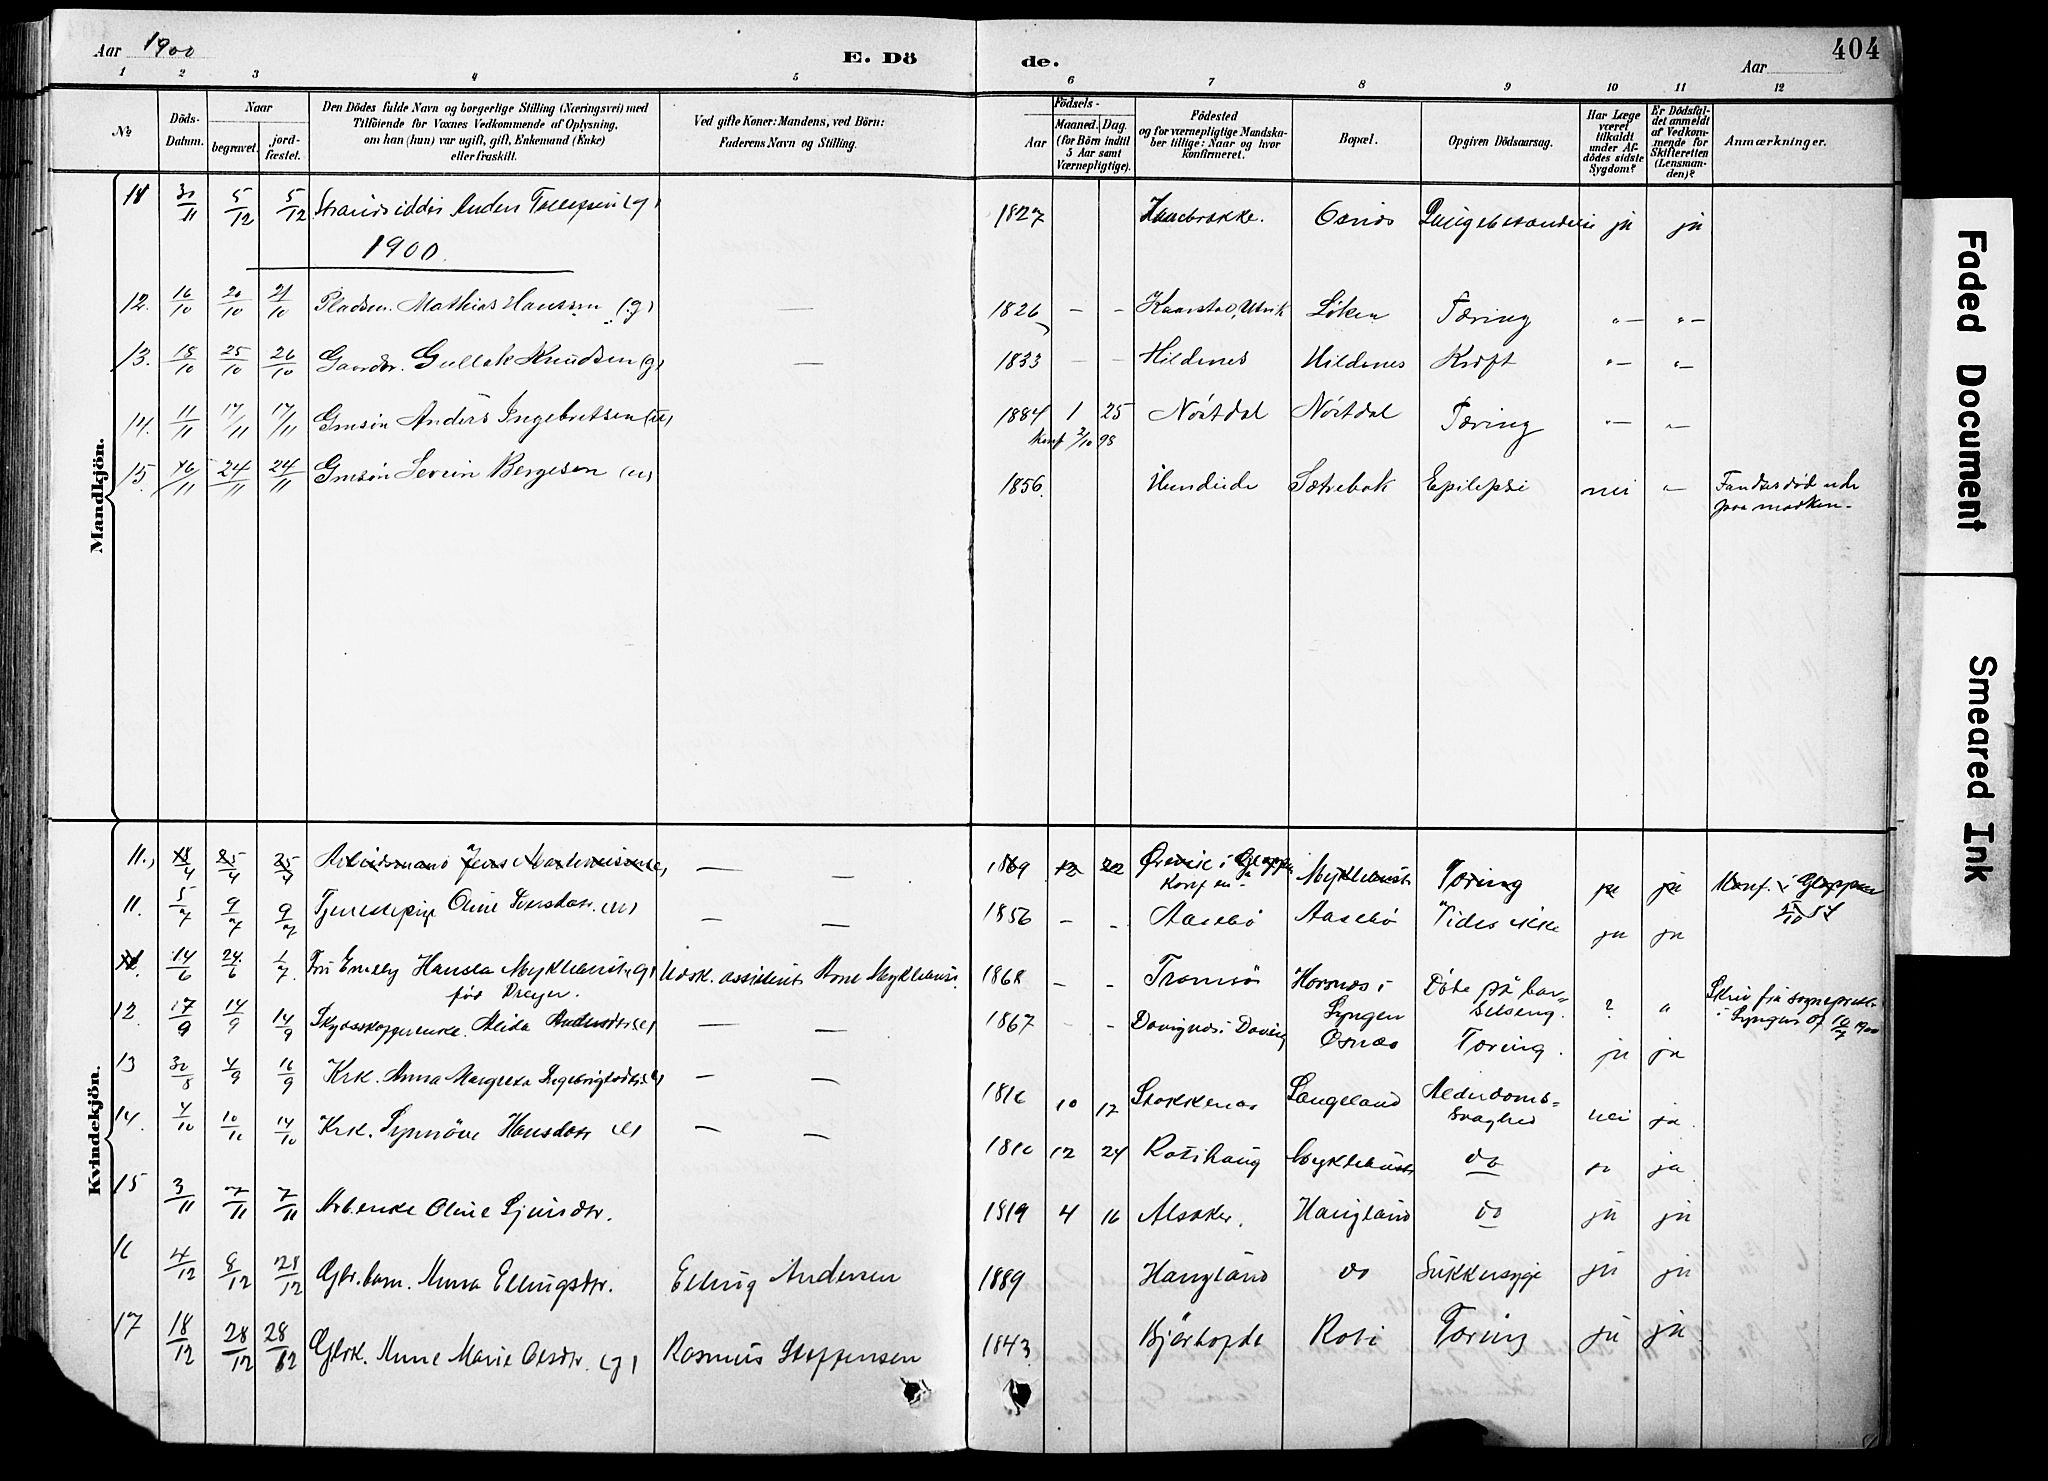 Aar 1900
E. Dö
de.
Aar
404
1 2 3 4 5 6 7 8 9 10 11 12
No
Döds-Datum.
Naar
begravet.
jord-fæstet.
Den Dödes fulde Navn og borgerlige Stilling (Næringsvei) med
Tilföiende for Voxnes Vedkommende af Oplysning,
om han (hun) var ugift, gift, Enkemand (Enke)
eller fraskilt.
Ved gifte Koner: Mandens, ved Börn:
Faderens Navn og Stilling.
Födsels-
Aar
Maaned.
Dag.
(for Börn indtil
5 Aar samt
Værnepligtige).
Födested
og for værnepligtige Mandska-
ber tillige: Naar og hvor
konfirmeret.
Bopæl.
Opgiven Dödsaarsag.
Har Læge
været
tilkaldt
under Af-
dödes sidste
Sygdom?
Er Dödsfal-
det anmeldt
af Vedkom-
mende for
Skifteretten
(Lensman-
den)?
Anmærkninger.
Mandkjön.
18 30/11 5/12 5/12 Strandsidder Anders Tollefsen (g) 1827 Osnes ja ja
1900.
12. 16/10 20/10 21/10 Pladsm. Mathias Hanssen (g) — 1826 – – Løken Tæring "– "–
13. 18/10 25/10 26/10 Gaardbr. Gullak Knudsen (g) — 1833 – – Hildenes Hildenes Kræft "– "–
14. 11/11 17/11 17/11 Gmsøn Anders Ingebretsen (u) 1884 1 25 Nørtdal Nørtdal Tæring "– "–
Konf 2/10 98
15. 16/11 24/11 24/11 Gmsøn Severin Bergesen (u) 1856. Hundeide Sætrebak Epilepsi nei "– Fandtes død ude
paa marken.
Kvindekjön.
11., 18/4 25/4 25/4 — — 1869 12 22 Myklebust Tæring ja ja Konf. i Gloppen
11. 5/7 9/7 9/7 Tjenestepige Oline Iversdatr. (u) — — 1856 – – Aasebø Aasebø Vides ikke ja ja
12. 14/6 24/6 1/7 Fru Emely Hansea Myklebust (g) Udsk. assistent Arne Myklebust. 1868 – – Tromsø Horsnes i Døde på bar-
født Dreyer. Lyngen selseng. ? " Skriv fra sogneprest
i Lyngen af
12. 17/9 14/9 14/9 Skydsskafferenke Alida Andersdtr (e) — — 1867 – – Osnæs Tæring. ja ja
13 30/8 4/9 16/9 Krk. Anna Margreta Ingebrigtsdtr (e) — — 1816 10 17 Stokkenæs Langeland Alderdoms-
svaghed nei ja
14. 4/10 10/10 14/10 Krk. Synnöve Hansdatr (e) — — 1810 12 24 Rotihaug Myklebust do ja
15 3/11 7/11 7/11 Arb.enke Oline Sjursdtr. 1819 4 16 Alsaker. Haugland do ja ja
16 4/12 8/12 28/12 Gbr. barn. Anna Ellingsdtr. Elling Andersen 1889 Haugland do Sukkersyge ja ja
17 18/12 28/12 28/12 Gbrk. Anne Marie Olsdtr. (g) Rasmus Steffensen 1843 Roti Tæring ja ja
Faded Document
Smeared Ink